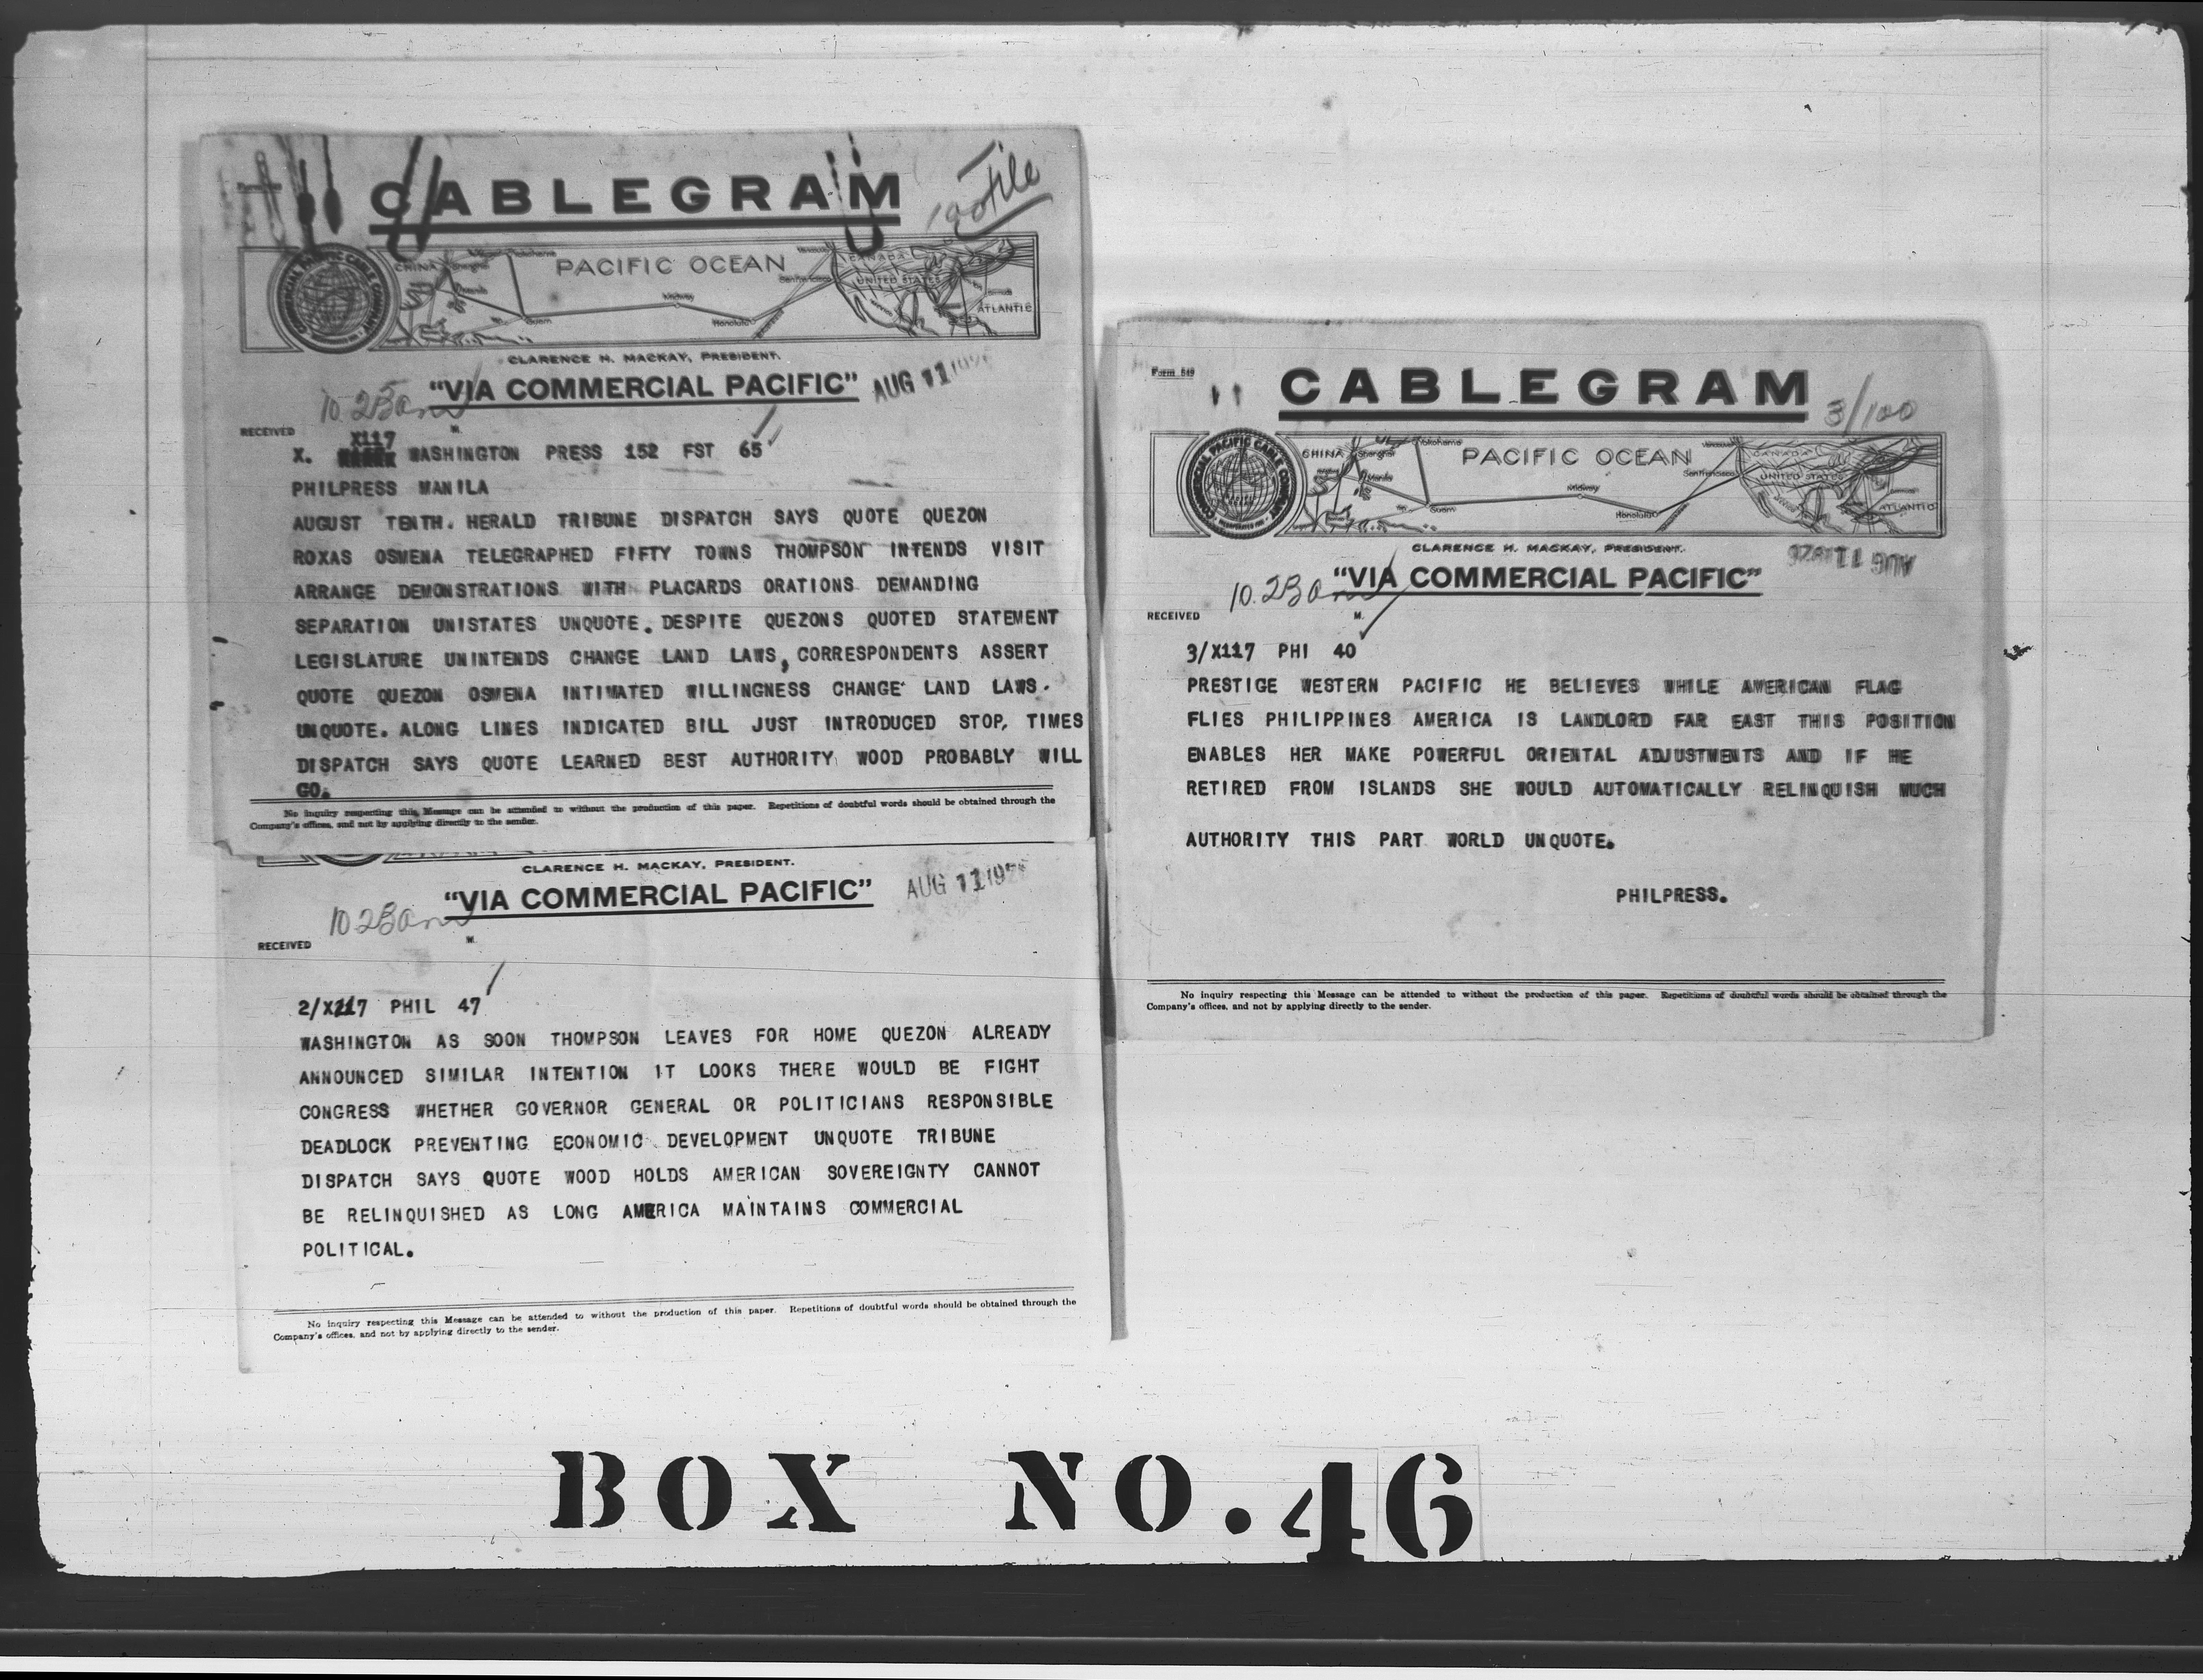 CABLEGRAM
File
COMMERCIAL PACIFIC CABLE COMPANY
CHINA Shanghai Yokohama PACIFIC OCEAN CANADA
Manila Midway San Francisco UNITED STATES
Guam Honolulu ATLANTIC
CLARENCE H. MACKAY, PRESIDENT.
"VIA COMMERCIAL PACIFIC" AUG 11
10.23am
RECEIVED M.
X117
X. WASHINGTON PRESS 152 FST 65
PHILPRESS MANILA
AUGUST TENTH. HERALD TRIBUNE DISPATCH SAYS QUOTE QUEZON
ROXAS OSMENA TELEGRAPHED FIFTY TOWNS THOMPSON INTENDS VISIT
ARRANGE DEMONSTRATIONS WITH PLACARDS ORATIONS DEMANDING
SEPARATION UNISTATES UNQUOTE. DESPITE QUEZONS QUOTED STATEMENT
LEGISLATURE UNINTENDS CHANGE LAND LAWS, CORRESPONDENTS ASSERT
QUOTE QUEZON OSMENA INTIMATED WILLINGNESS CHANGE LAND LAWS.
UNQUOTE. ALONG LINES INDICATED BILL JUST INTRODUCED STOP, TIMES
DISPATCH SAYS QUOTE LEARNED BEST AUTHORITY WOOD PROBABLY WILL
GO.
No inquiry respecting this Message can be attended to without the production of this paper. Repetitions of doubtful words should be obtained through the
Company's offices, and not by applying directly to the sender.
CLARENCE H. MACKAY, PRESIDENT.
"VIA COMMERCIAL PACIFIC" AUG 11 192
10.23am
RECEIVED M.
2/X117 PHIL 47
WASHINGTON AS SOON THOMPSON LEAVES FOR HOME QUEZON ALREADY
ANNOUNCED SIMILAR INTENTION IT LOOKS THERE WOULD BE FIGHT
CONGRESS WHETHER GOVERNOR GENERAL OR POLITICIANS RESPONSIBLE
DEADLOCK PREVENTING ECONOMIC DEVELOPMENT UNQUOTE TRIBUNE
DISPATCH SAYS QUOTE WOOD HOLDS AMERICAN SOVEREIGNTY CANNOT
BE RELINQUISHED AS LONG AMERICA MAINTAINS COMMERCIAL
POLITICAL.
No inquiry respecting this Message can be attended to without the production of this paper. Repetitions of doubtful words should be obtained through the
Company's offices, and not by applying directly to the sender.
Form 549
CABLEGRAM
3/100
COMMERCIAL PACIFIC CABLE COMPANY INCORPORATED
CHINA Shanghai Yokohama PACIFIC OCEAN Vancouver CANADA
Manila Midway San Francisco UNITED STATES Bermuda
Guam Honolulu ATLANTIC
CLARENCE H. MACKAY, PRESIDENT.
"VIA COMMERCIAL PACIFIC" AUG 11 1926
10.23am
RECEIVED M.
3/X117 PHI 40
PRESTIGE WESTERN PACIFIC HE BELIEVES WHILE AMERICAN FLAG
FLIES PHILIPPINES AMERICA IS LANDLORD FAR EAST THIS POSITION
ENABLES HER MAKE POWERFUL ORIENTAL ADJUSTMENTS AND IF HE
RETIRED FROM ISLANDS SHE WOULD AUTOMATICALLY RELINQUISH MUCH
AUTHORITY THIS PART WORLD UNQUOTE.
PHILPRESS.
No inquiry respecting this Message can be attended to without the production of this paper. Repetitions of doubtful words should be obtained through the
Company's offices, and not by applying directly to the sender.
BOX NO. 46